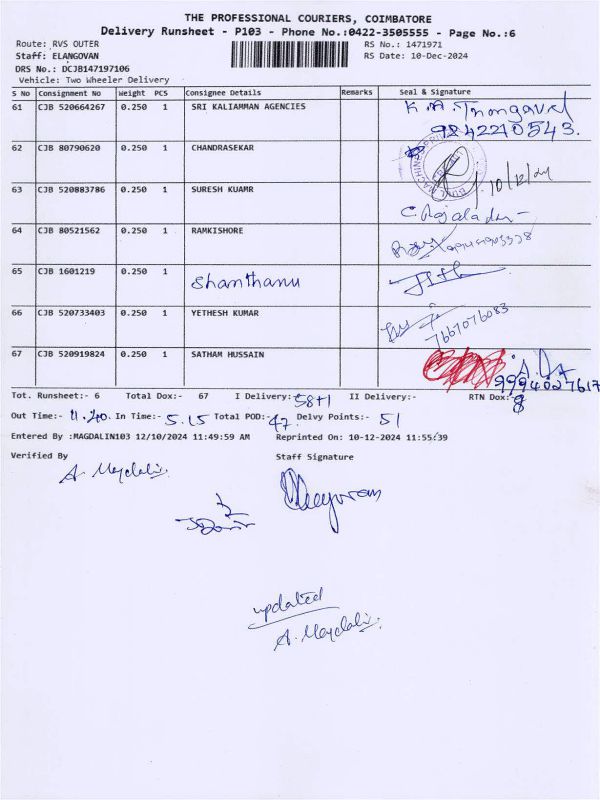 THE PROFESSIONAL COURIERS, COIMBATORE
Delivery Runsheet - P103 - Phone No.:0422-3505555 - Page No.:6
Route: RVS OUTER RS No.: 1471971
Staff: ELANGOVAN RS Date: 10-Dec-2024
DRS No.: DCJB147197106
Vehicle: Two Wheeler Delivery
S No Consignment No Weight PCS Consignee Details Remarks Seal & Signature
61 CJB 520664267 0.250 1 SRI KALIAMMAN AGENCIES
9842210543.
62 CJB 80790620 0.250 1 CHANDRASEKAR
10/12/24
63 CJB 520883786 0.250 1 SURESH KUAMR
64 CJB 80521562 0.250 1 RAMKISHORE
65 CJB 1601219 0.250 1 Shanthanu
66 CJB 520733403 0.250 1 YETHESH KUMAR
7667076083
67 CJB 520919824 0.250 1 SATHAM HUSSAIN
9994027617
Tot. Runsheet:- 6 Total Dox:- 67 I Delivery:- 58+1 II Delivery:- RTN Dox:- 8
Out Time:- 11.40. In Time:- 5.15 Total POD:- 47. Delvy Points:- 51
Entered By :MAGDALIN103 12/10/2024 11:49:59 AM Reprinted On: 10-12-2024 11:55:39
Verified By Staff Signature
A. Magdalin
updated
A. Magdalin